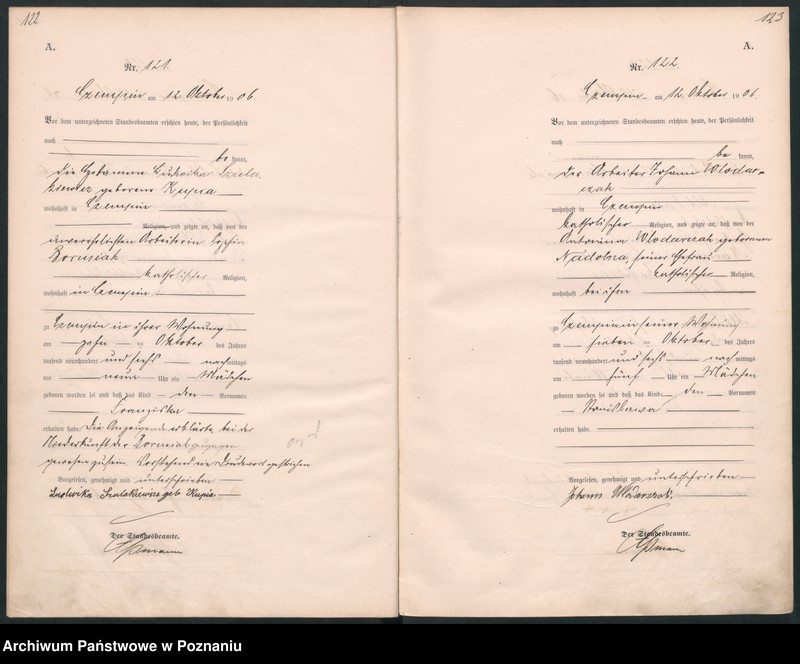 122
A.
Nr. 121.
Czempin am 12 Oktober 1906.
Vor dem unterzeichneten Standesbeamten erschien heute, der Persönlichkeit
nach
be kannt,
die Hebamme Ludwika
geborene Kupia
wohnhaft in Czempin
Religion, und zeigte an, daß von der
unverehelichten Arbeiterin Sophia
Borusiak
katholischer Religion,
wohnhaft in Czempin
zu Czempin in ihrer Wohnung
am zehn ten Oktober des Jahres
tausend neunhundert und sechs nachmittags
um neun Uhr ein Mädchen
geboren worden sei und daß das Kind den Vornamen
Franziska
erhalten habe. Die Anzeigende erklärte, bei der
Niederkunft der Borusiak zugegen
gewesen zu sein. Vorstehend ein Druckwort gestrichen
Vorgelesen, genehmigt und unterschrieben
Ludwika geb Kupia
Der Standesbeamte.
123
A.
Nr. 122.
Czempin am 12. Oktober 1906.
Vor dem unterzeichneten Standesbeamten erschien heute, der Persönlichkeit
nach
be kannt,
der Arbeiter Johann Wlodar-
czak
wohnhaft in Czempin
katholischer Religion, und zeigte an, daß von der
Antonina Wlodarczak geborenen
Nadolna, seiner Ehefrau
katholischer Religion,
wohnhaft bei ihm
zu Czempin in seiner Wohnung
am sieben ten Oktober des Jahres
tausend neunhundert und sechs nachmittags
um fünf Uhr ein Mädchen
geboren worden sei und daß das Kind den Vornamen
Stanislawa
erhalten habe.
Vorgelesen, genehmigt und unterschrieben
Johann Wlodarczak.
Der Standesbeamte.
Archiwum Państwowe w Poznaniu